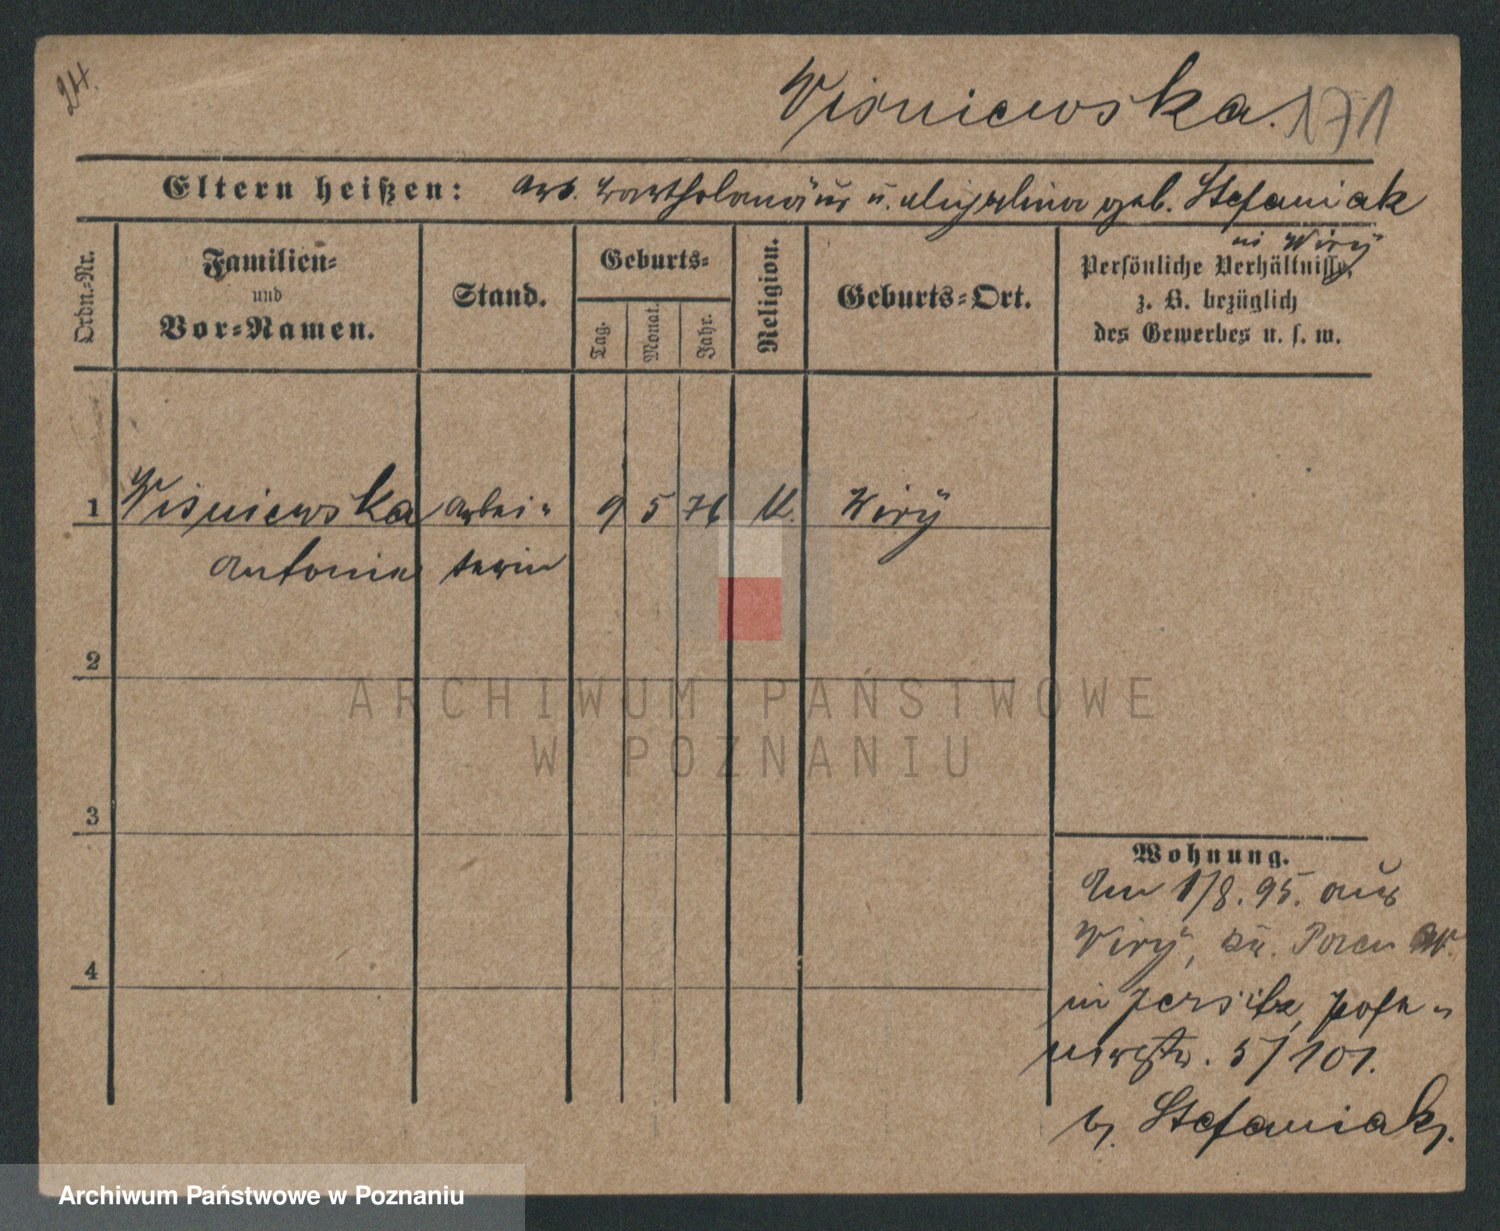 24.
Wisniewska. 171
Eltern heißen: Arb. Bartholomäus u. geb. Stefaniak
in Wiry
Ordn.-Nr.
Familien-
und
Vor-Namen.
Stand.
Geburts-
Tag.
Monat.
Jahr.
Religion.
Geburts-Ort.
Persönliche Verhältnisse,
z. B. bezüglich
des Gewerbes u. s. w.
1 Wiśniewska Arbei- 9 5 76 K. Wiry
Antonie terin
2
3
4
Wohnung.
Am 1/8. 95. aus
Wiry, zu. Posen W.
in Jersitz, Pose-
nerstr. 5/101.
b. Stefaniak.
ARCHIWUM PAŃSTWOWE
W POZNANIU
Archiwum Państwowe w Poznaniu